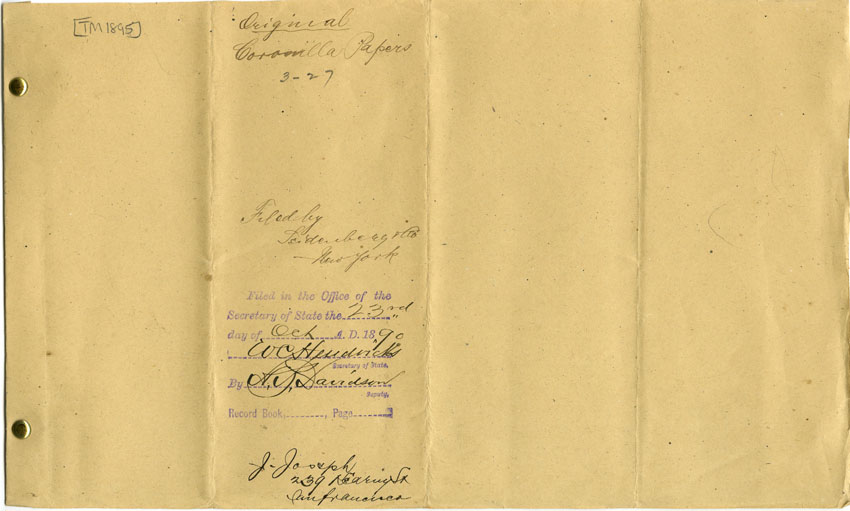 [TM1895]
Original
Coronilla Papers
3-27
Filed by
Seidenberg & Co
New York
Filed in the Office of the
Secretary of State the 23rd
day of Oct A. D. 1890
W C Hendricks
Secretary of State.
By A. J. Davidson
Deputy.
Record Book, Page
J. Joseph
239 Kearny St
San francisco